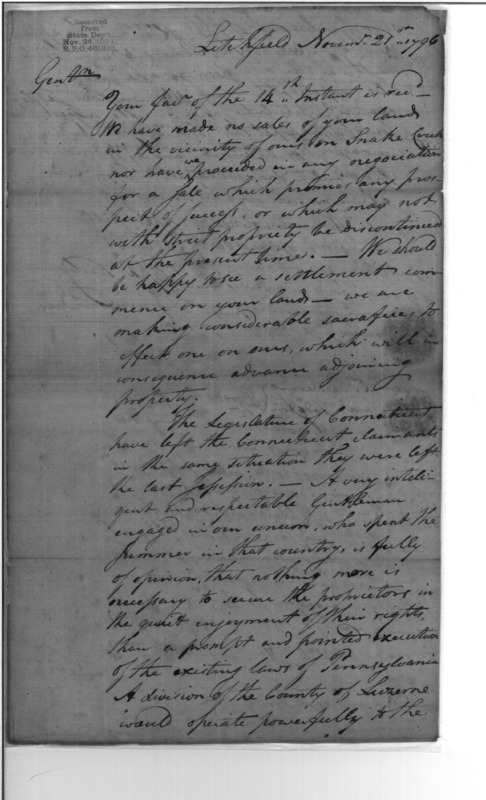 Received
from
State Dep't.
Nov. 24,
Litchfield Novemr. 21st. 1796
Gentn
Your favr. of the 14th. Instant is recd. —
We have made no sales of your lands
in the vicinity of ours on Snake Creek
nor have we proceeded in any negociation
for a sale which promises any pros-
pect of success, or which may not
with strict propriety be discontinued
at the present time. — We should
be happy to see a settlement com-
mence on your lands — we are
making considerable sacrafices to
effect one on ours, which will in
consequence advance adjoining
property.
The Legislature of Connecticut
have left the Connecticut claimants
in the same situation they were left
the last session. — A very inteli-
gent and respectable Gentleman
engaged in our concern, who spent the
summer in that country, is fully
of opinion, that nothing more is
necessary to secure the proprietors in
the quiet enjoyment of their rights,
than a prompt and pointed execution
of the existing laws of Pennsylvania
A division of the County of Luzerne
would operate powerfully to the